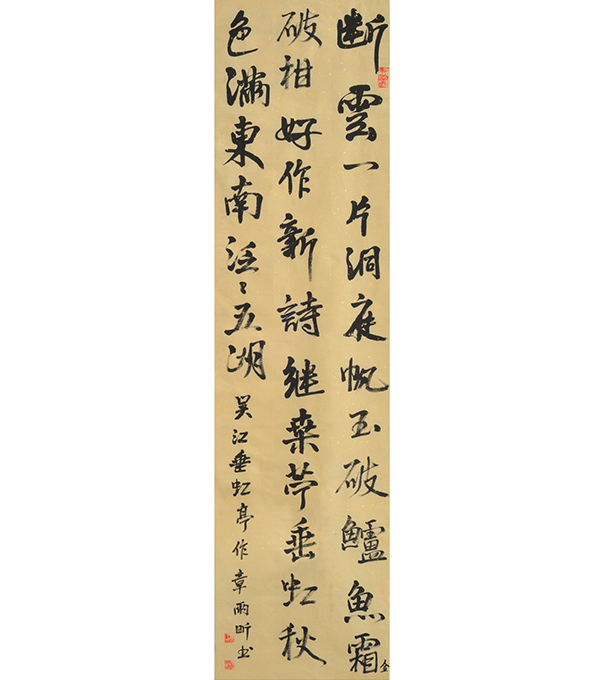 斷雲一片洞庭帆玉破鱸魚霜金
破柑好作新詩継桒苧垂虹秋
色滿東南泛〻五湖
吳江垂虹亭作章雨昕书